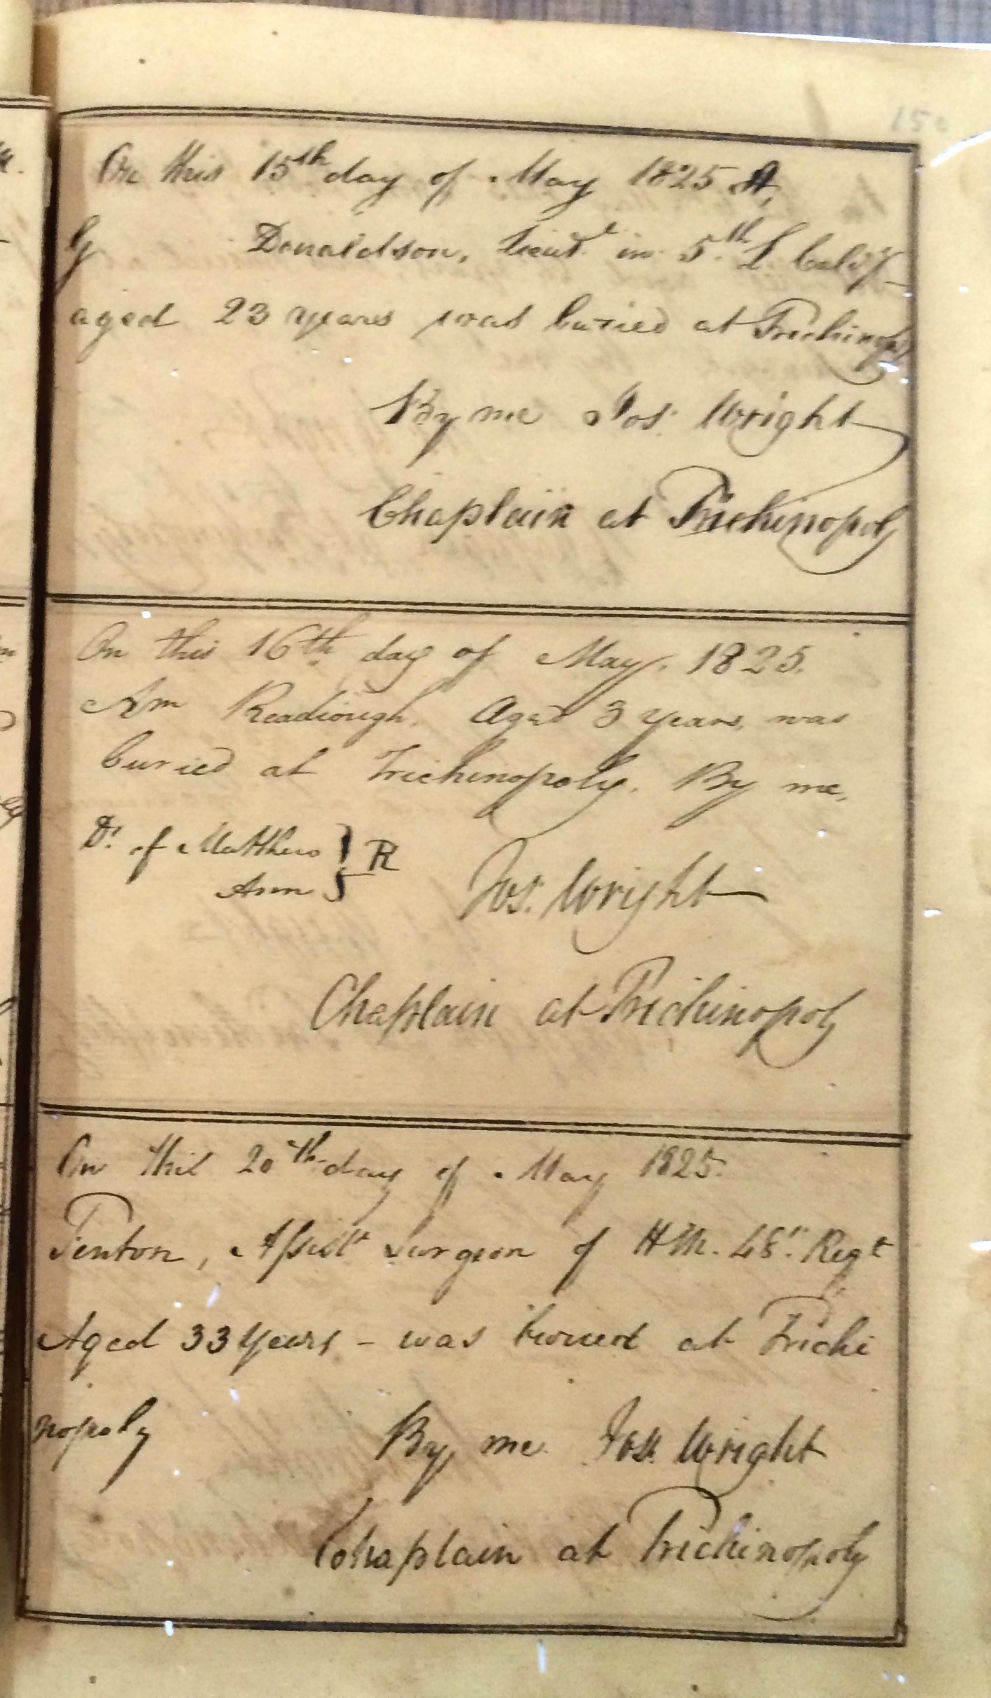 150
On this 15th day of May 1825 A,
G Donaldson, Lieut. in 5th L. Cal'y
aged 23 years was buried at Trichinopoly
By me Jos. Wright
Chaplain at Trichinopoly
On this 16th day of May. 1825.
Ann Readiough. Aged 3 years, was
buried at Trichinopoly. By me,
Dr. of Matthew
Ann } R
Jos. Wright
Chaplain at Trichinopoly
On this 20th day of May 1825.
Fenton, Assist. Surgeon of H.M. 48th Regt
Aged 33 Years – was buried at Trichi
nopoly By me Jos. Wright
Chaplain at Trichinopoly